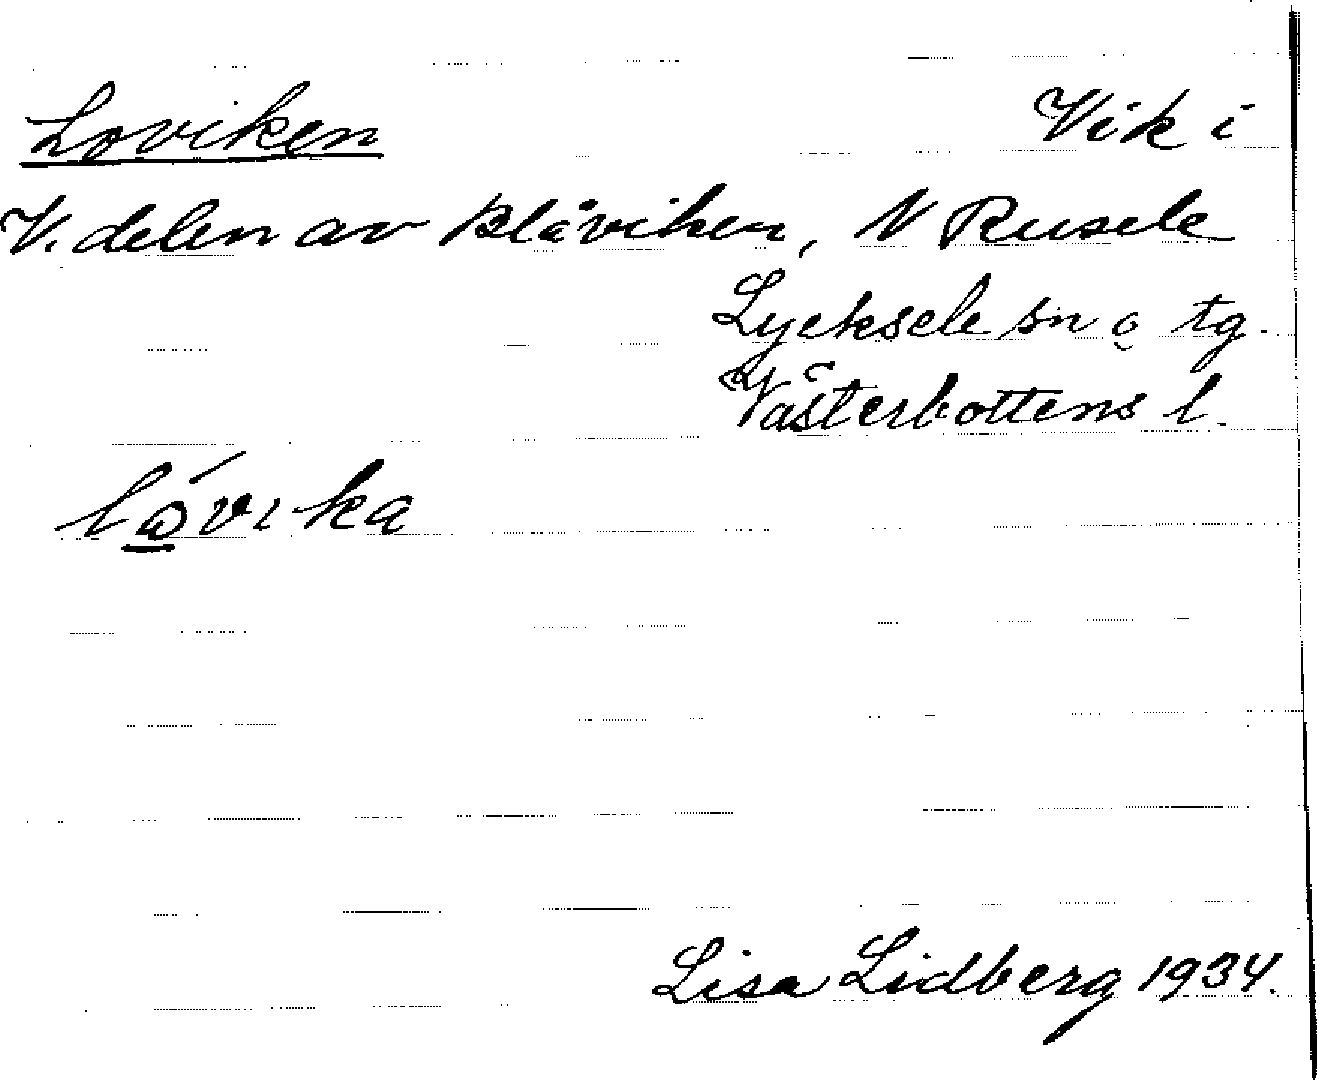 Loviken Vik i
V. delen av Blåviken, N Rusele
Lycksele sn o tg.
Västerbottens l.
lóvika
Lisa Lidberg 1934.